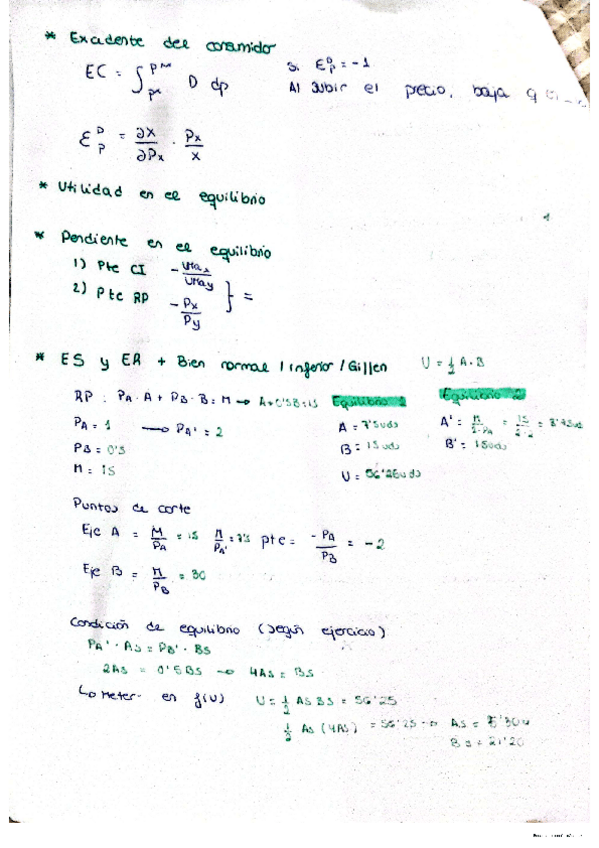 * Excedente del consumidor
EC = ∫ p* pᴹ D dp
si Eᴰp = -1
Al subir el precio, baja q
εᴰp = ∂X/∂Px · Px/x
* Utilidad en el equilibrio
1
* Pendiente en el equilibrio
1) Pte CI - UMax/UMay
2) Pte RP - Px/Py } =
* ES y ER + Bien normal / inferior / Giffen U = 1/2 A·B
RP : PA·A + PB·B = M → A+0'5B=15 Equilibrio 1 Equilibrio 2
PA = 1 → PA' = 2 A = 7'5uds A' = M/2·PA = 15/2·2 = 3'75uds
PB = 0'5 B = 15uds B' = 15uds
M = 15 U = 56'25uds
Puntos de corte
Eje A = M/PA = 15 M/PA' = 7'5 pte = -PA/PB = -2
Eje B = M/PB = 30
Condición de equilibrio (según ejercicio)
PA' · As = PB' · Bs
2As = 0'5Bs → 4As = Bs
↳ Meter en f(U) U = 1/2 As Bs = 56'25
1/2 As (4As) = 56'25 → As = 5'30u
Bs = 21'20